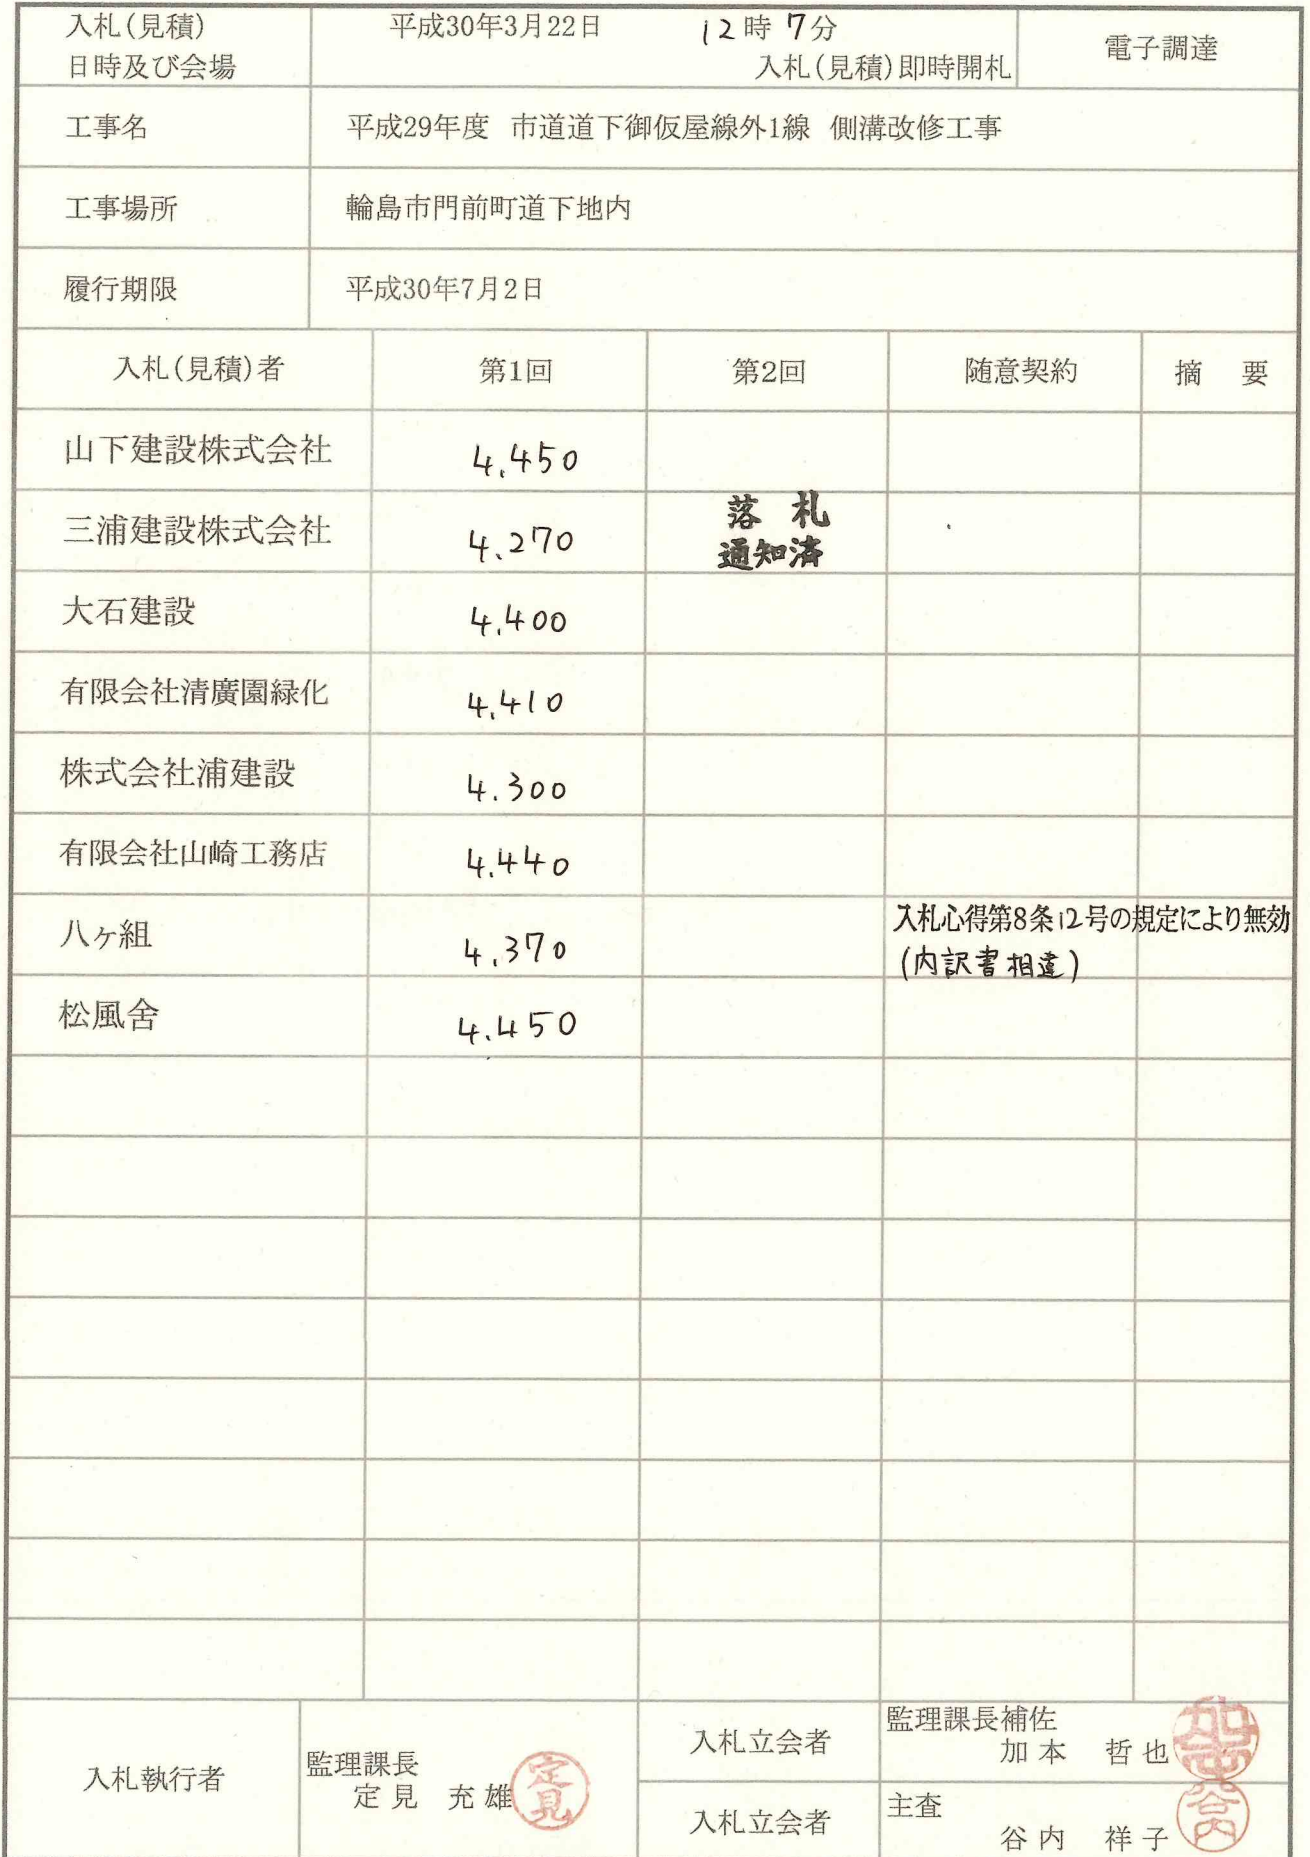 入札(見積) 平成30年3月22日 12時 7分 電子調達
日時及び会場 入札(見積)即時開札
工事名 平成29年度 市道道下御仮屋線外1線 側溝改修工事
工事場所 輪島市門前町道下地内
履行期限 平成30年7月2日
入札(見積)者 第1回 第2回 随意契約 摘 要
山下建設株式会社 4.450
三浦建設株式会社 4.270 落 札
通知済
大石建設 4.400
有限会社清廣園緑化 4.410
株式会社浦建設 4.300
有限会社山崎工務店 4.440
八ヶ組 4.370 入札心得第8条12号の規定により無効
(内訳書相違)
松風舎 4.450
入札執行者 監理課長
定見 充雄 定見
入札立会者 監理課長補佐
加本 哲也
入札立会者 主査
谷内 祥子 谷内